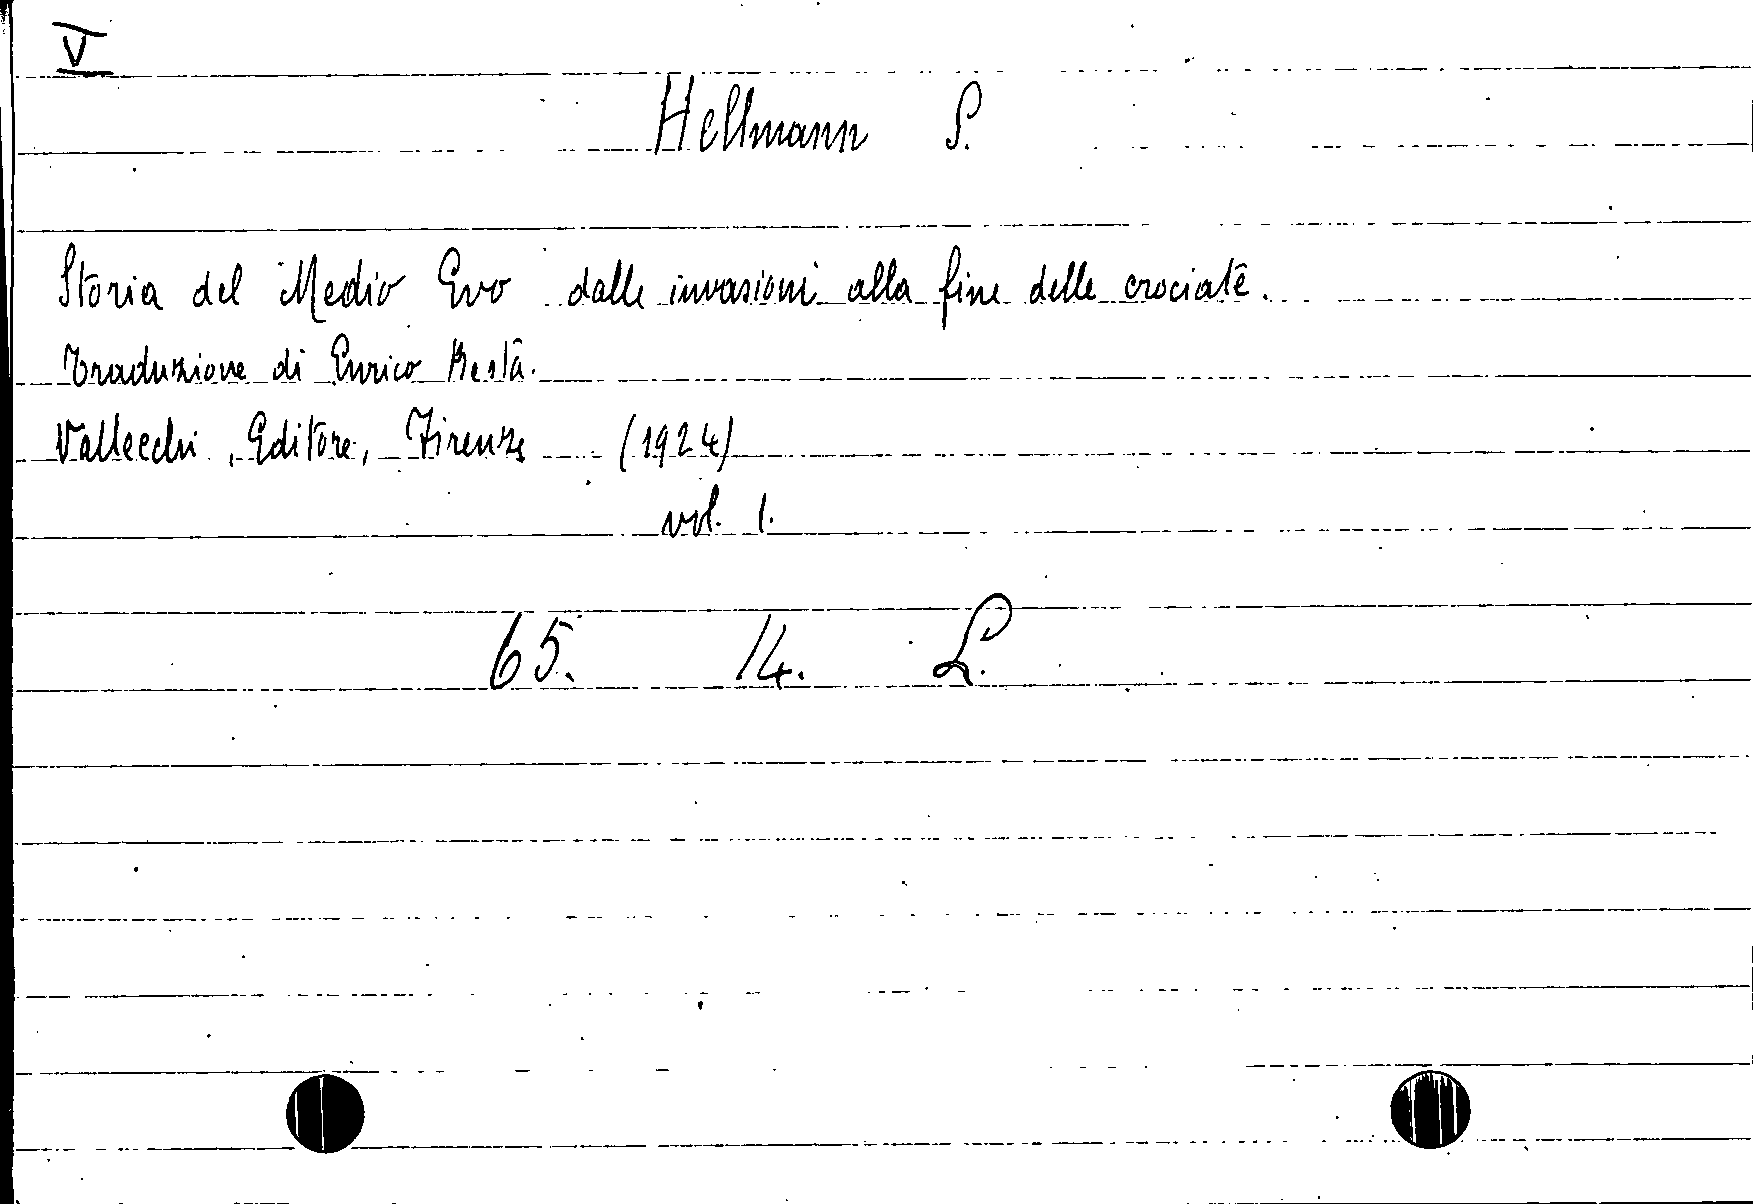 V
Hellmann S.
Storia del Medio Evo dalle invasioni alla fine delle crociate.
Traduzione di Enrico Besta.
Vallecchi, Editore, Firenze (1924)
vol. 1.
65. 14. L.